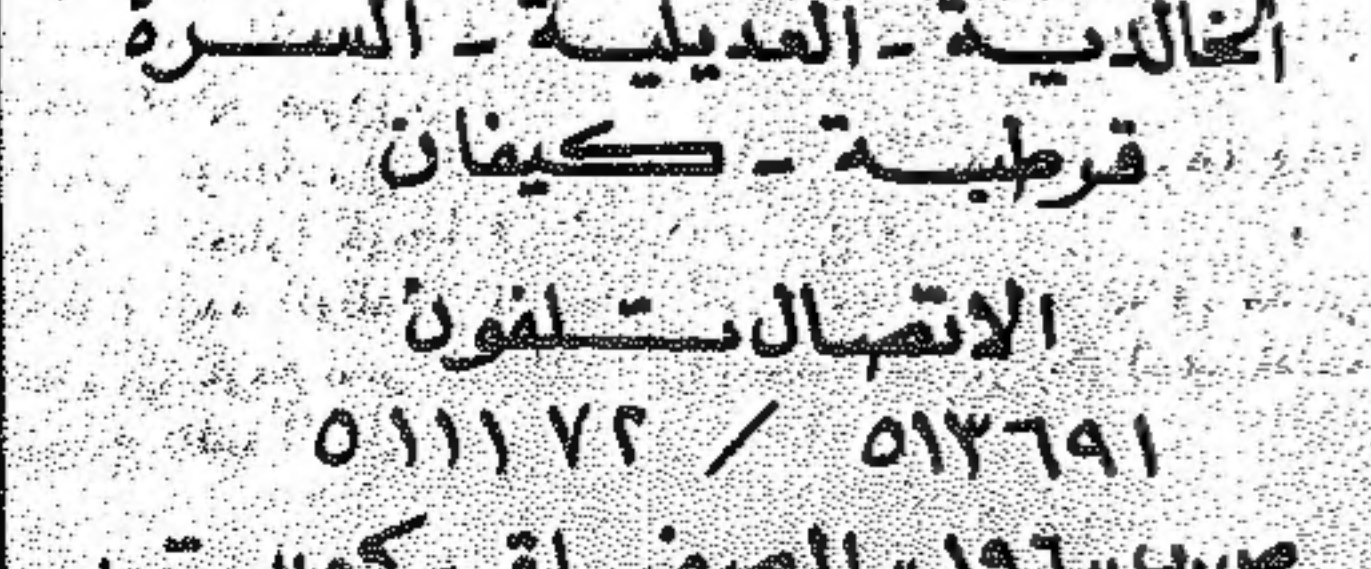 الخالدية - العديلية - السرة
قرطبة - كيفان
الاتصال تلفون
٥١٣٦٩١ / ٥١١١٧٢